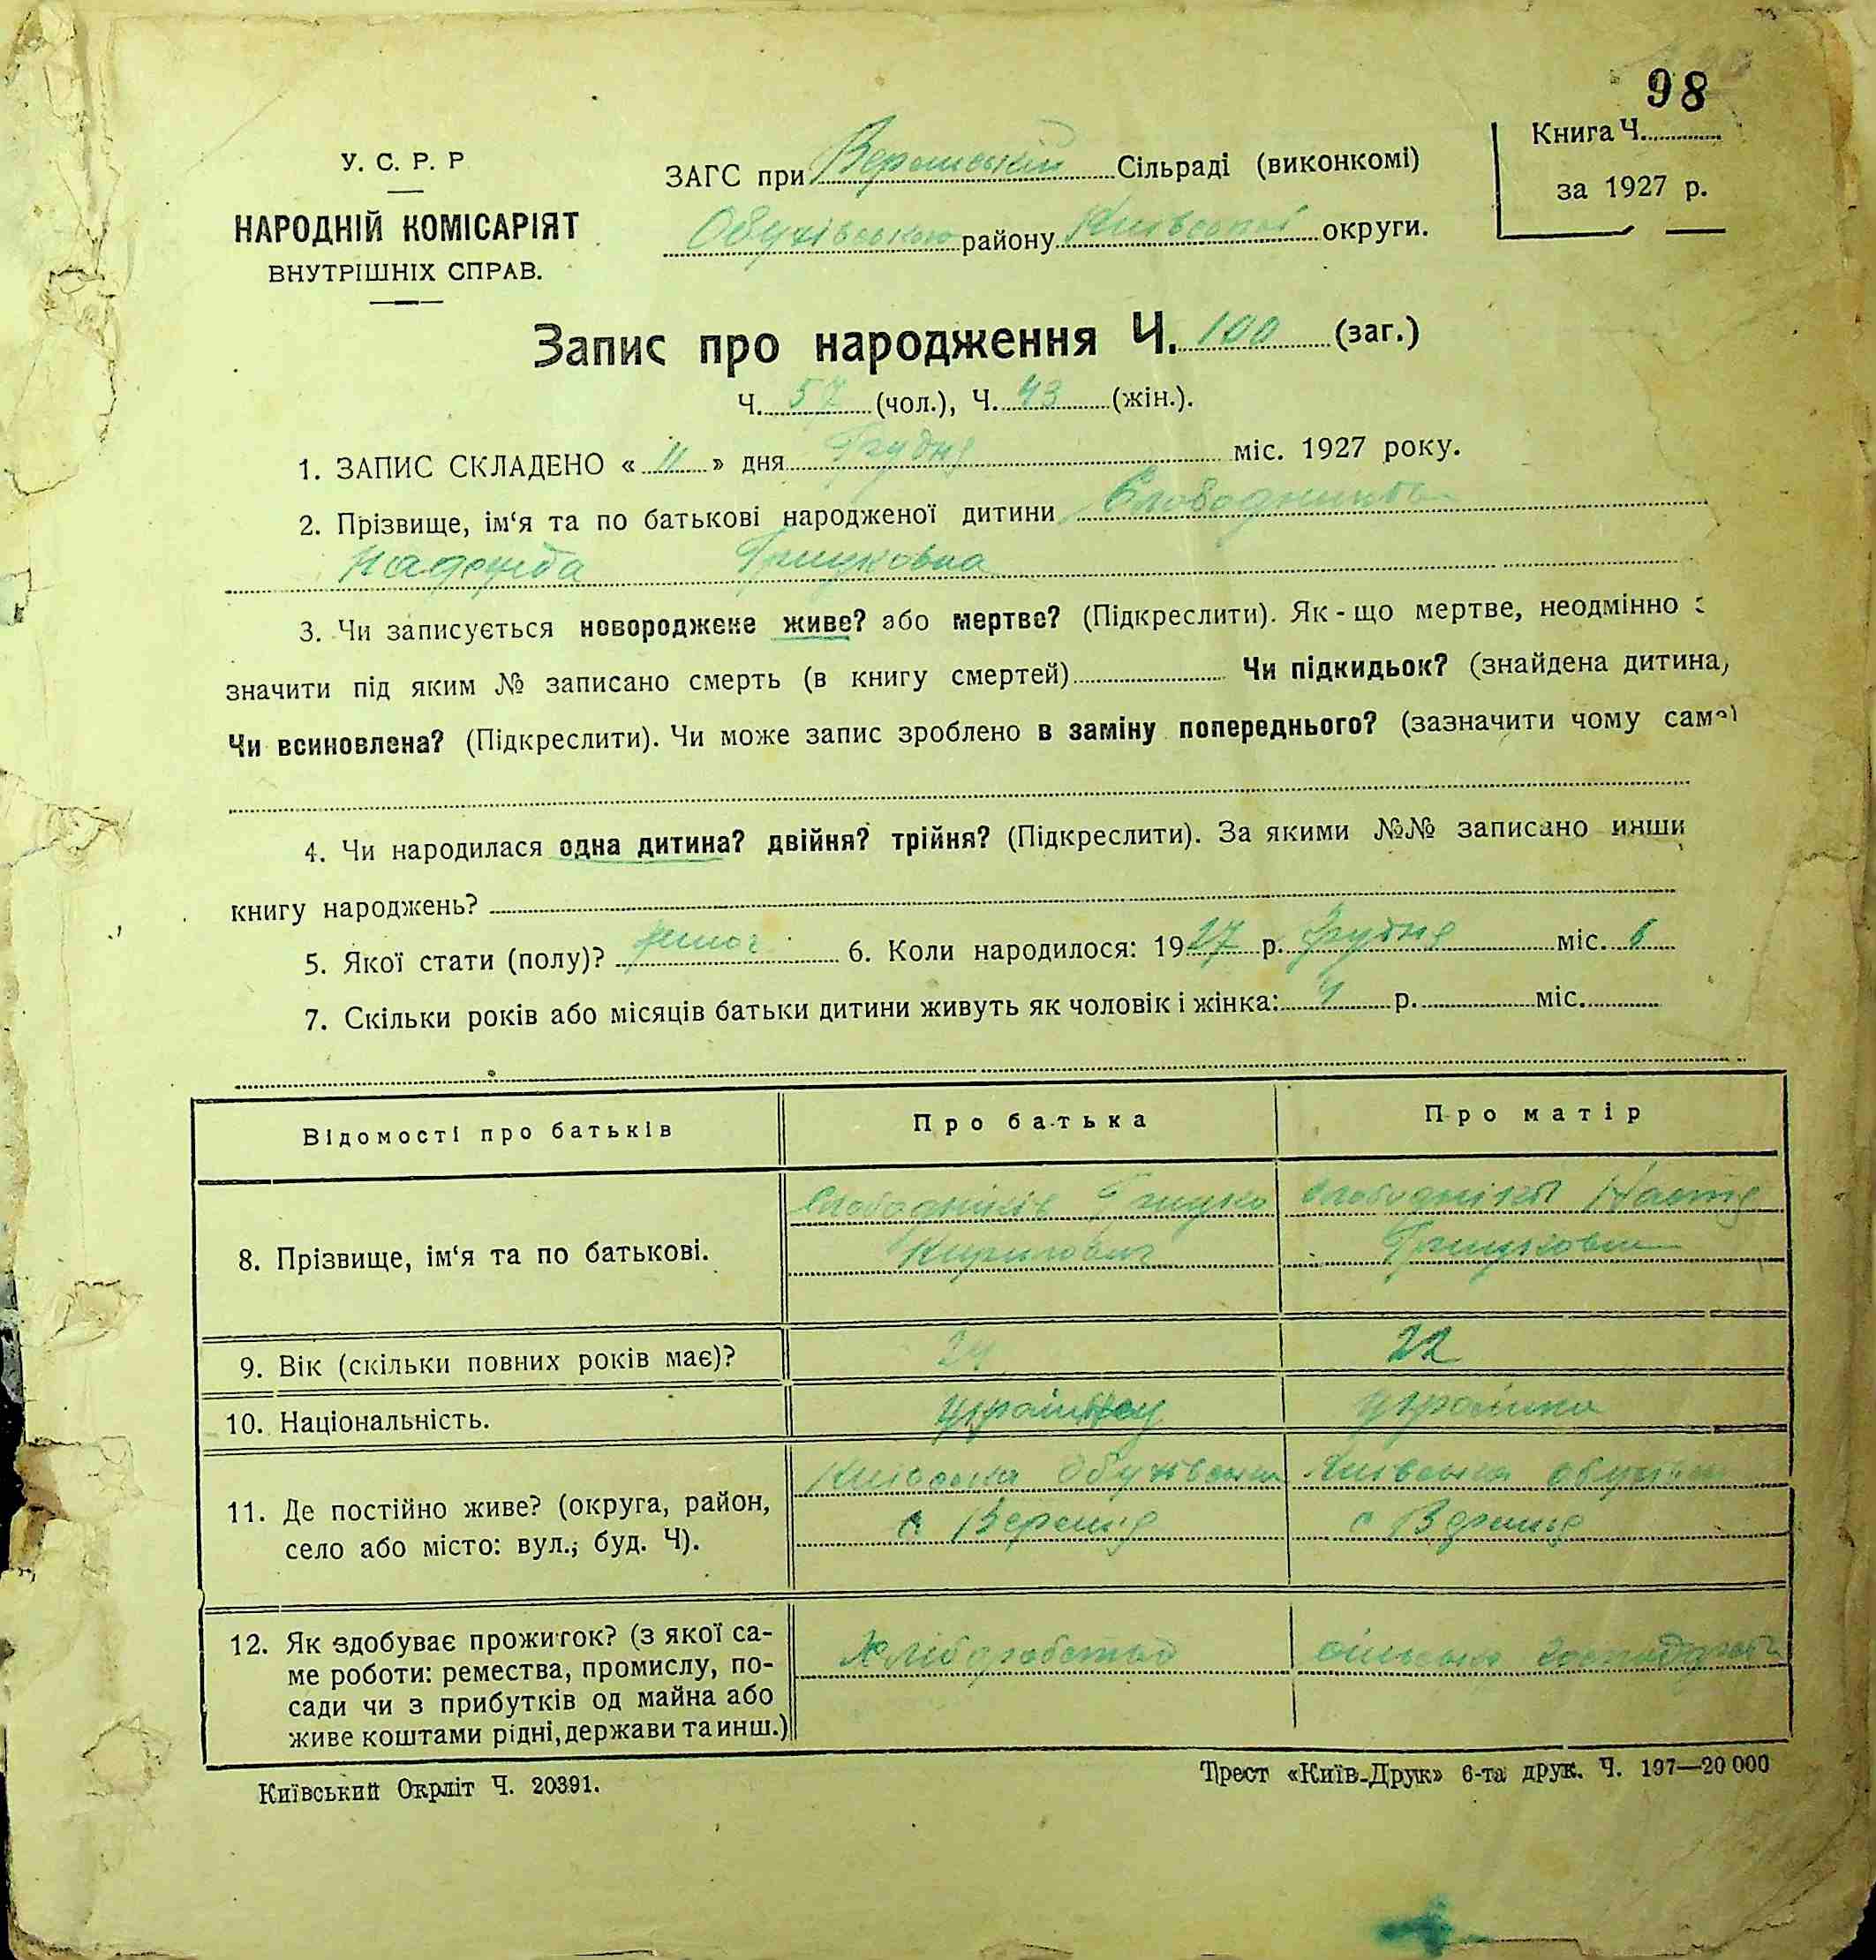 98
Книга Ч.
за 1927 р.
У. С. Р. Р
НАРОДНІЙ КОМІСАРІЯТ
ВНУТРІШНІХ СПРАВ.
ЗАГС при Сільраді (виконкомі)
Обухівського району Київської округи.
Запис про народження Ч. 100 (заг.)
Ч. 57 (чол.), Ч. 43 (жін.).
1. ЗАПИС СКЛАДЕНО « 11 » дня Грудня міс. 1927 року.
2. Прізвище, ім‘я та по батькові народженої дитини
Надежда Грицковна
3. Чи записується новороджене живе? або мертве? (Підкреслити). Як-що мертве, неодмінно
значити під яким № записано смерть (в книгу смертей) Чи підкидьок? (знайдена дитина,
Чи всиновлена? (Підкреслити). Чи може запис зроблено в заміну попереднього? (зазначити чому саме)
4. Чи народилася одна дитина? двійня? трійня? (Підкреслити). За якими №№ записано инши
книгу народжень?
5. Якої стати (полу)? 6. Коли народилося: 1927 р. Грудня міс. 6
7. Скільки років або місяців батьки дитини живуть як чоловік і жінка: 4 р. міс.
Відомості про батьків Про батька Про матір
8. Прізвище, ім‘я та по батькові.
Грицко
Настя
Кирилович
9. Вік (скільки повних років має)? 24 22
10. Національність. українец українка
11. Де постійно живе? (округа, район,
село або місто: вул., буд. Ч).
Київська Обухівський Київська
с Веремя с Веремя
12. Як здобуває прожиток? (з якої са-
ме роботи: ремества, промислу, по-
сади чи з прибутків од майна або
живе коштами рідні, держави та инш.)
Хліборобство
Київський Окрліт Ч. 20391.
Трест «Київ-Друк» 6-та друк. Ч. 197—20 000